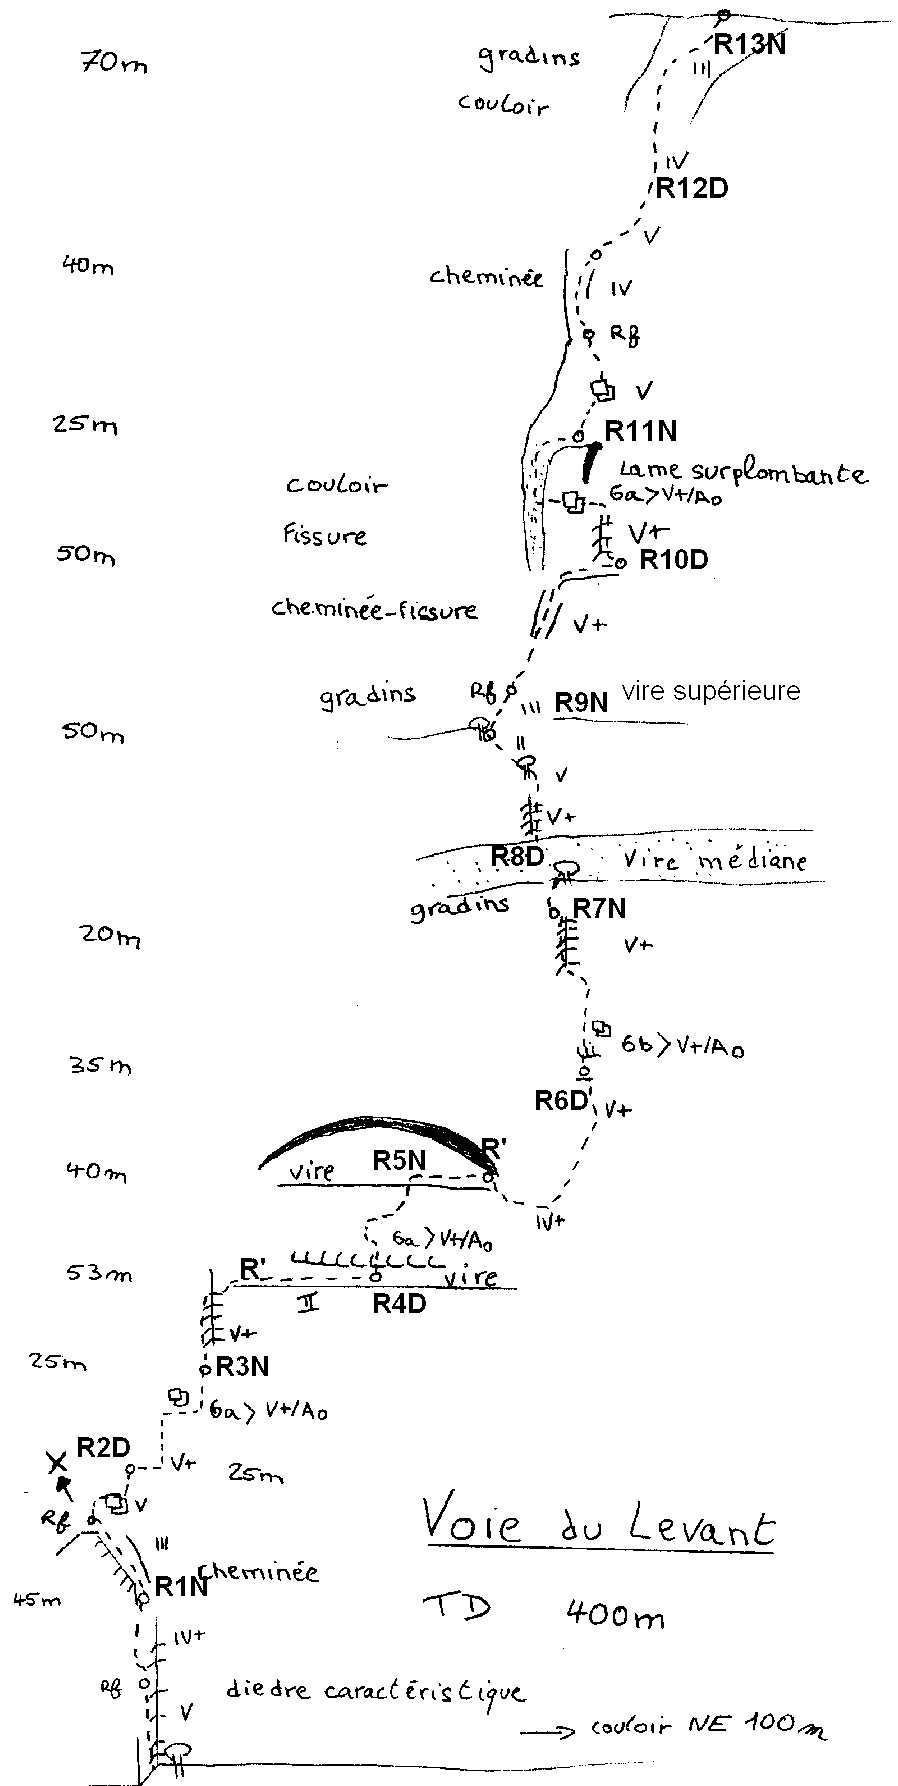 R13N
gradins
70m
III
couloir
IV
R12D
V
40m
cheminée
IV
Rf
V
25m
R11N
Lame surplombante
couloir
6a>V+/A0
fissure
V+
50m
R10D
cheminée-fissure
V+
gradins
Rf
III
R9N
vire supérieure
50m
II
V
V+
R8D
vire médiane
gradins
R7N
20m
V+
6b>V+/A0
35m
R6D
V+
R'
R5N
40m
vire
IV+
6a>V+/A0
R'
53m
vire
II
R4D
V+
25m
R3N
6a>V+/A0
R2D
V+
25m
V
Rf
Voie du Levant
III
cheminée
R1N
45m
TD 400m
IV+
Rf
diedre caractéristique
V
couloir NE 100m